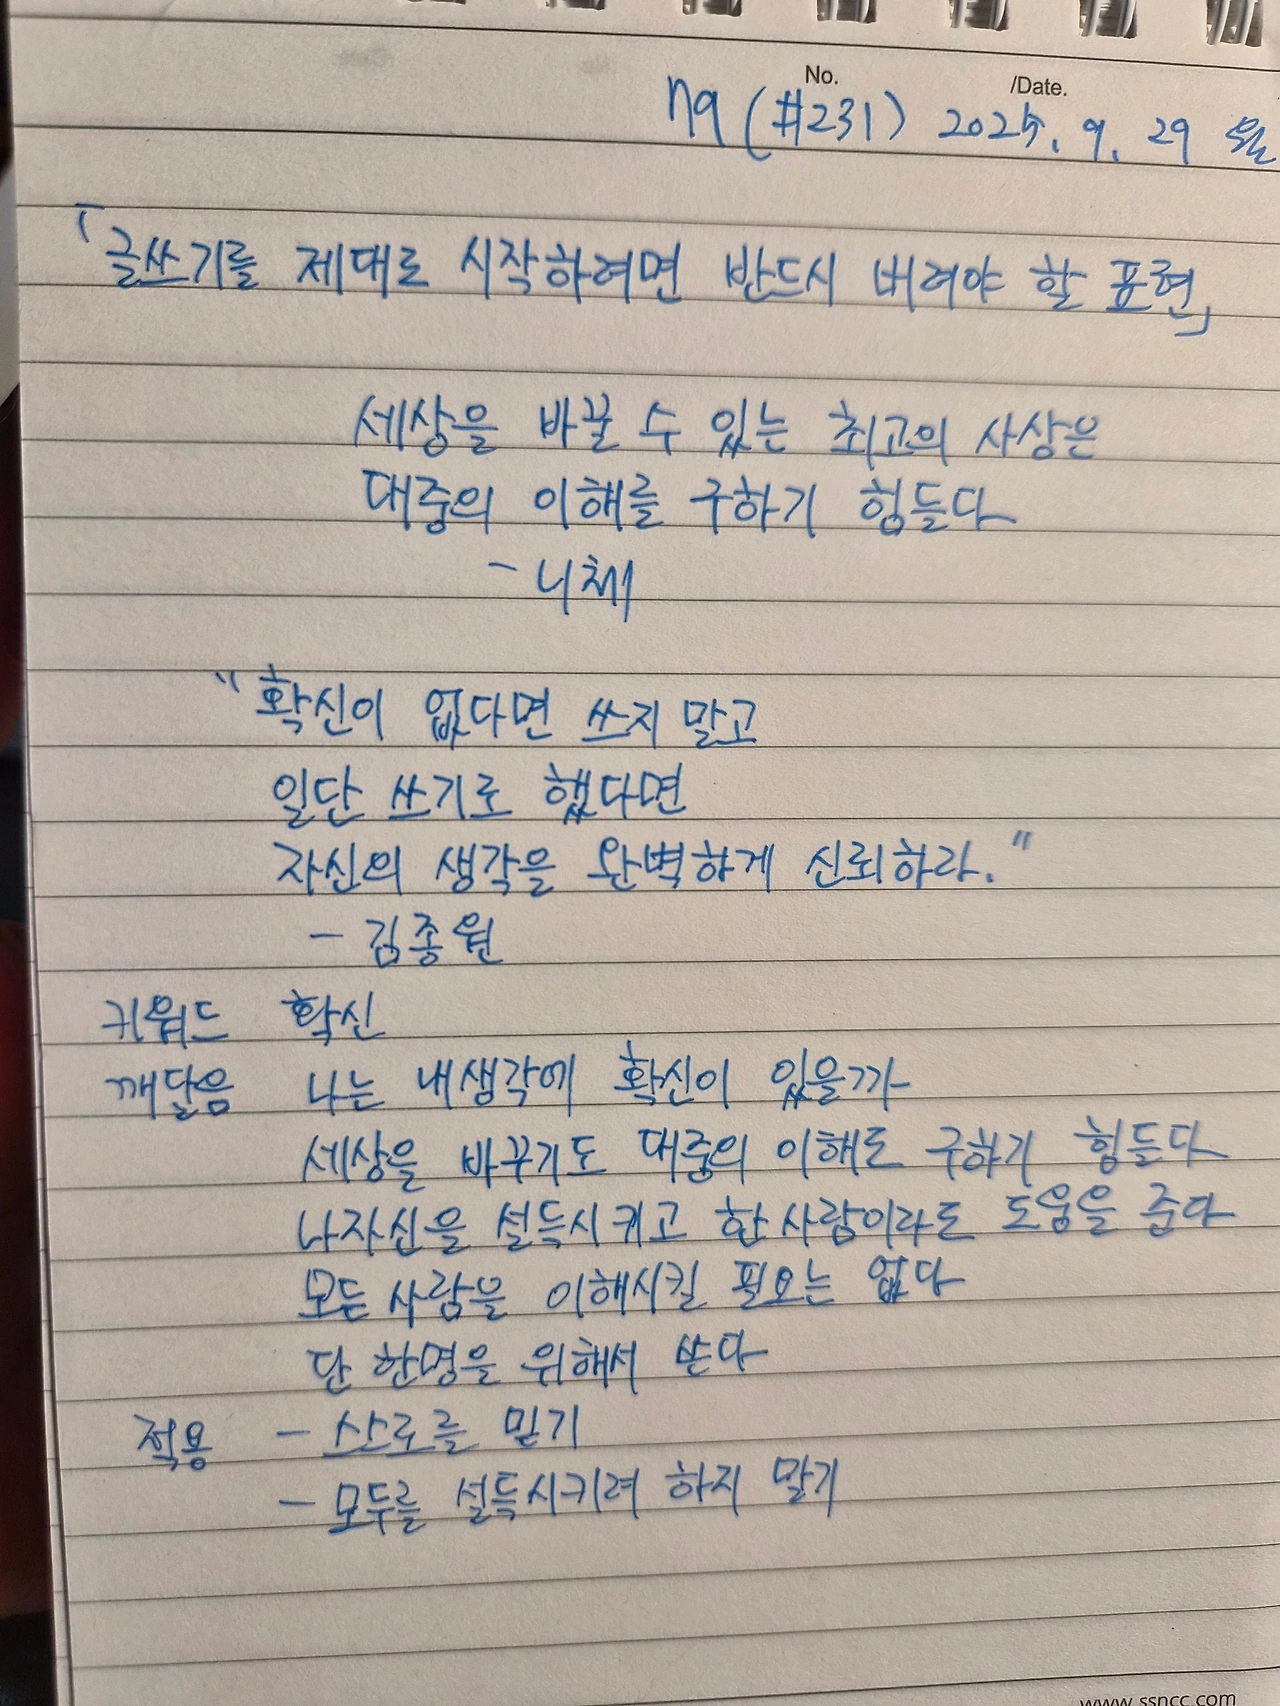 No. /Date.
79 (#231) 2025. 9. 29 월
「글쓰기를 제대로 시작하려면 반드시 버려야 할 표현」
세상을 바꿀 수 있는 최고의 사상은
대중의 이해를 구하기 힘들다
- 니체
"확신이 없다면 쓰지 말고
일단 쓰기로 했다면
자신의 생각을 완벽하게 신뢰하라."
- 김종원
키워드 확신
깨달음 나는 내생각에 확신이 있을까
세상을 바꾸기도 대중의 이해도 구하기 힘들다
나자신을 설득시키고 한 사람이라도 도움을 준다
모든 사람을 이해시킬 필요는 없다
단 한명을 위해서 쓴다
적용 - 스스로를 믿기
- 모두를 설득시키려 하지 말기
www.ssncc.com